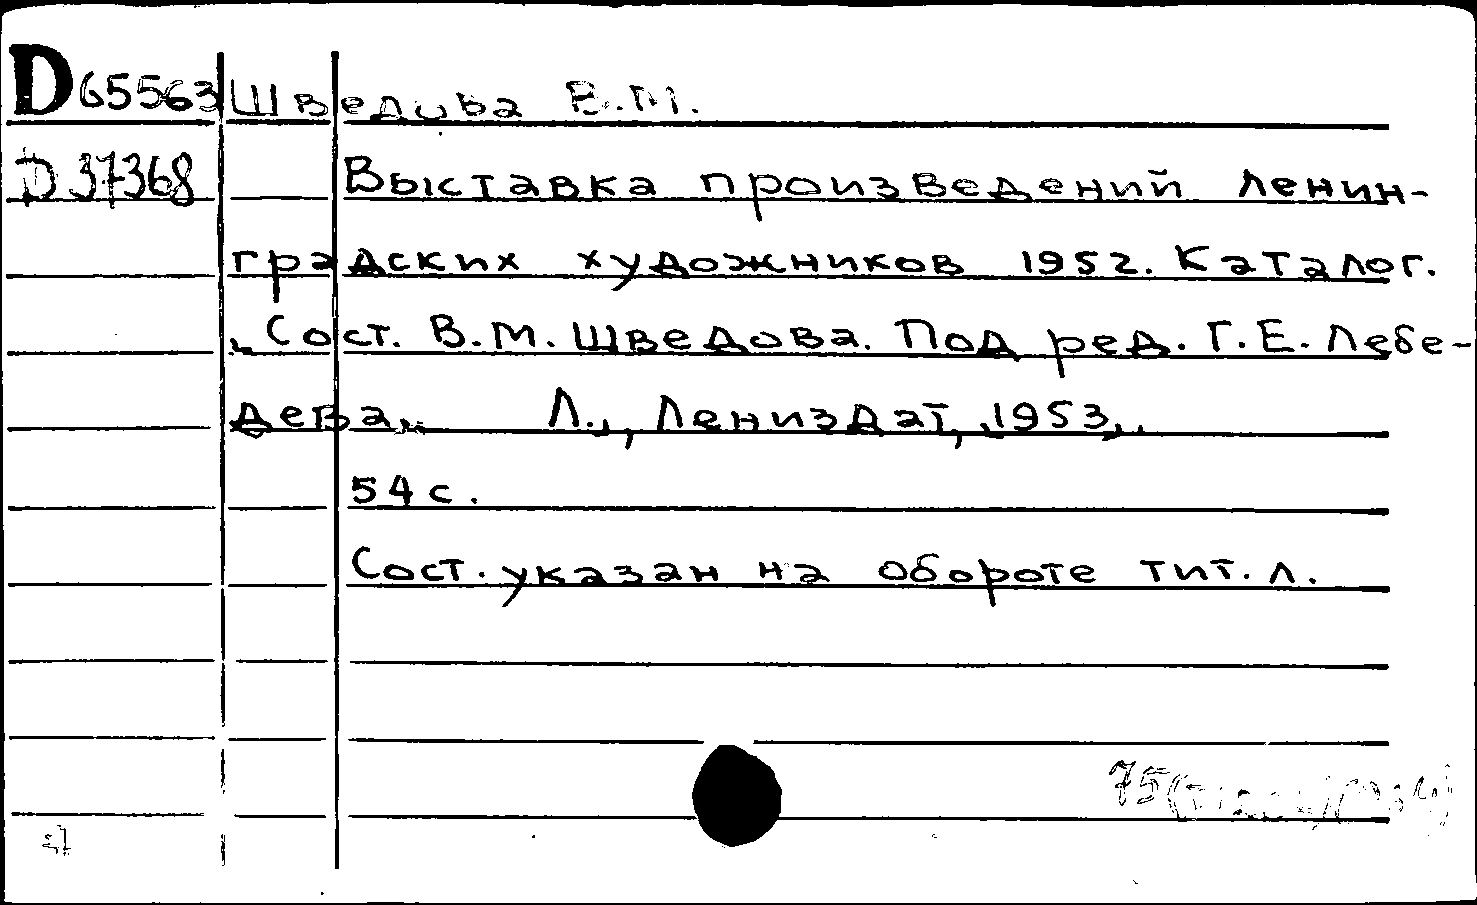 D65563 Шведова В.М.
D37368 Выставка произведений ленин-
градских художников 1952. Каталог.
„Сост. В.М. Шведова. Под ред. Г.Е. Лебе-
дева„ Л., Лениздат, 1953„
54 с.
Сост. указан на обороте тит. л.
75